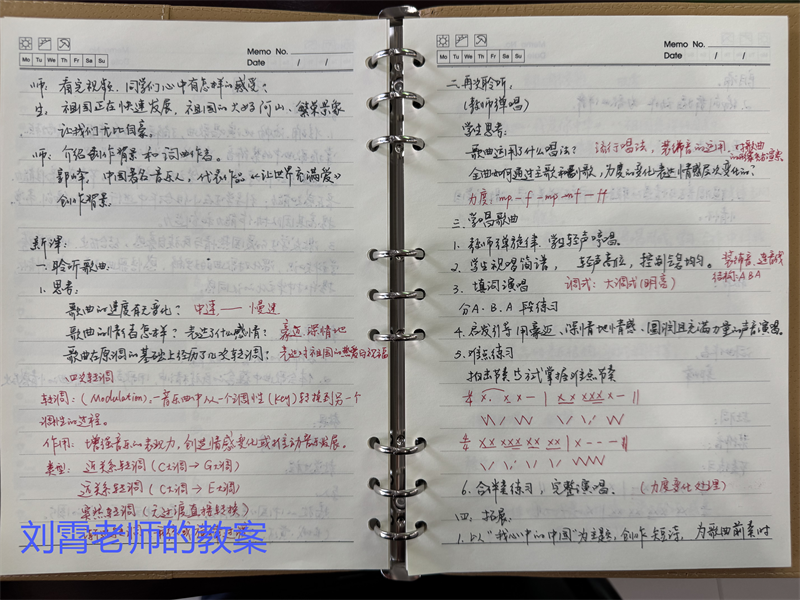 Memo No.
Mo Tu We Th Fr Sa Su
Date / /
师：看完视频，同学们心中有怎样的感受？
生：祖国正在快速发展，祖国的大好河山、繁荣景象
让我们无比自豪。
师：介绍创作背景和词曲作者。
郭峰，中国著名音乐人，代表作品《让世界充满爱》
创作背景。
新课：
一、聆听歌曲：
1. 思考：
歌曲的速度有无变化？ 中速——慢速
歌曲的情绪怎样？表达了什么感情： 豪迈 深情地
歌曲在原调的基础上经历了几次转调：表达对祖国的热爱与祝福
四次转调
转调：（Modulation）：一音乐曲中从一个调性（Key）转换到另一个
调性的过程。
作用：增强音乐的表现力，创造情感变化或推动音乐发展。
类型：近关系转调（C大调→G大调）
远关系转调（C大调→E大调）
突然转调（无过渡直接转换）
刘霄老师的教案
Memo No.
Mo Tu We Th Fr Sa Su
Date / /
二、再次聆听：
（教师弹唱）
学生思考：
歌曲运用了什么唱法？ 流行唱法，装饰音的运用，对歌曲
全曲如何通过主歌和副歌，力度的变化表达情感层次变化的？
力度：mp－f－mp－mf－ff
三、学唱歌曲
1. 教师弹旋律，学生轻声哼唱。
2. 学生视唱简谱，轻声高位，控制气息均匀。 装饰音、连音线
结构：ABA
3. 填词演唱 调式：大调式（明亮）
分A、B、A段练习
4. 启发引导用豪迈、深情地情感、圆润且充满力量的声音演唱。
5. 难点练习
拍击节奏 尝试掌握难点节奏
X. X X － | X X XXX X － ||
XX XXX XX XX | X － － － ||
6. 合伴奏练习，完整演唱。（力度变化处理）
四、拓展：
1. 以“我心中的中国”为主题，创作短诗，为歌曲前奏时